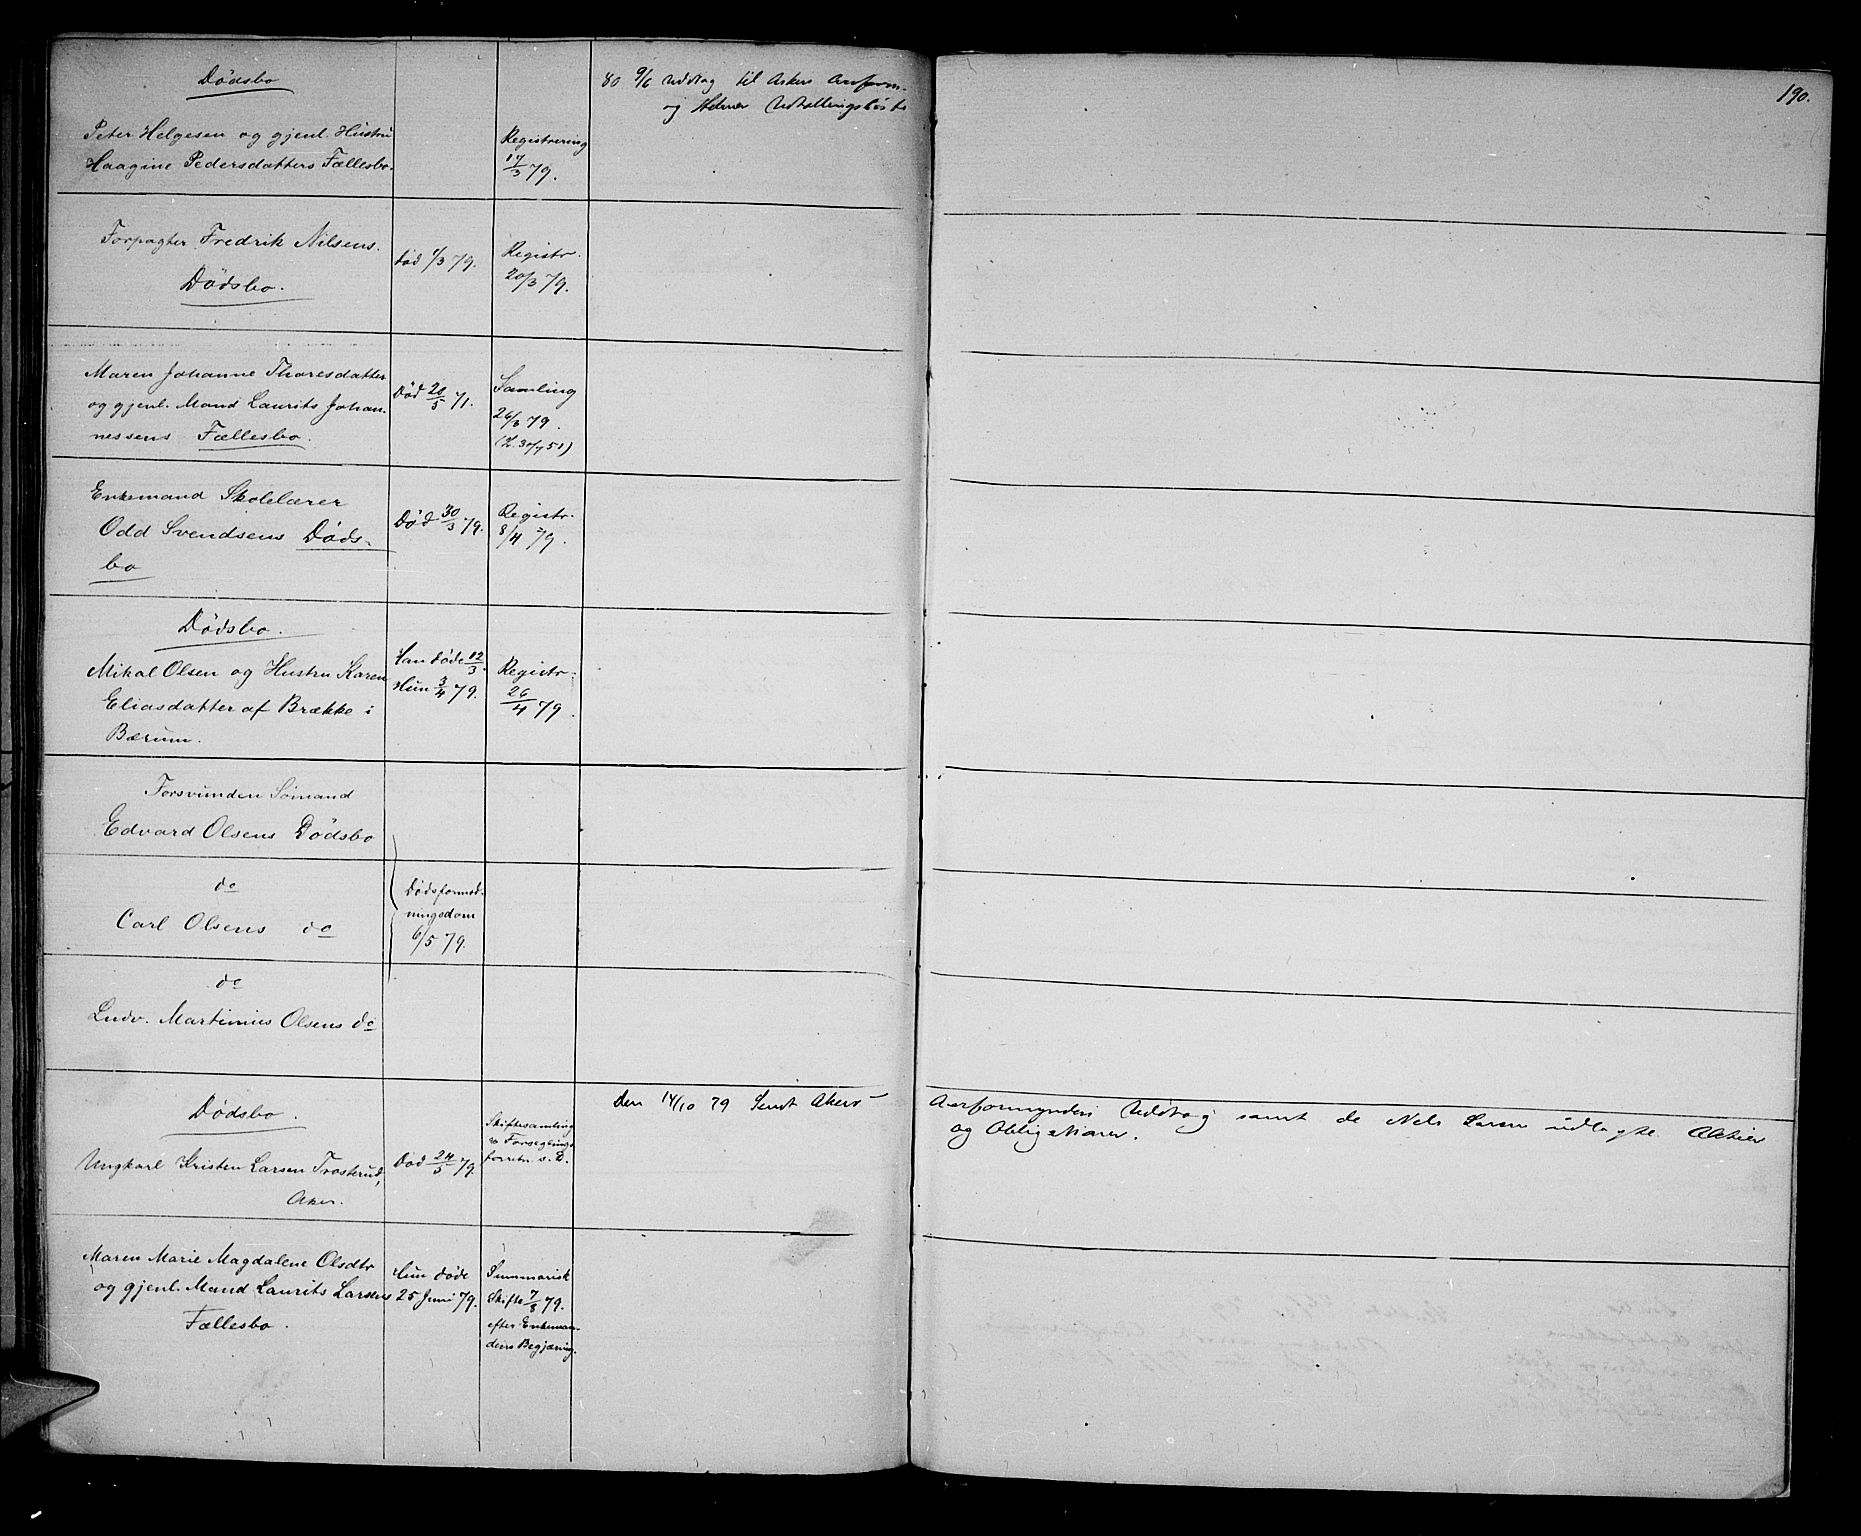 190.
Dødsbo
Peter Helgesen og gjenl. Hustru
Haagine Pedersdatters Fællesbo.
Registrering
17/3 79.
80 9/6 Uddtag til Askers
og Udtællingsliste
Forpagter Fredrik Nilsens
Dødsbo.
død 1/3 79.
Registr.
20/3 79.
Maren Johanne Thoresdatter
og gjenl. Mand Laurits Johan-
nessens Fællesbo.
Død 20/5 71.
Samling
26/3 79.
Enkemand Skolelærer
Odd Svendsens Døds-
bo
Død 30/3 79.
Registr.
8/4 79.
Dødsbo.
Mikal Olsen og Hustru Karen
Eliasdatter af Brække i
Bærum.
Han døde 12/3.
Hun 3/4 79.
Registr.
26/4 79.
Forsvunden Sømand
Edvard Olsens Dødsbo
do
Carl Olsens do
Dødsformod-
ningsdom
6/5 79.
do
Ludv. Martinius Olsens do
Dødsbo.
Ungkarl Kristen Larsen Trosterud,
Aker.
Død 24/5 79.
Skiftesamling
& Forseglings
forretn. s. D.
den 14/10 79 Sendt Akers
Overformynderi Uddtog samt de Nels Larsen udlagte Aktier
og Obligationer.
Maren Marie Magdalene Olsdtr
og gjenl. Mand Laurits Larsens
Fællesbo.
Hun døde
25 Juni 79.
Summarisk
Skifte 7/8 79.
efter Enkeman-
dens Begjæring.